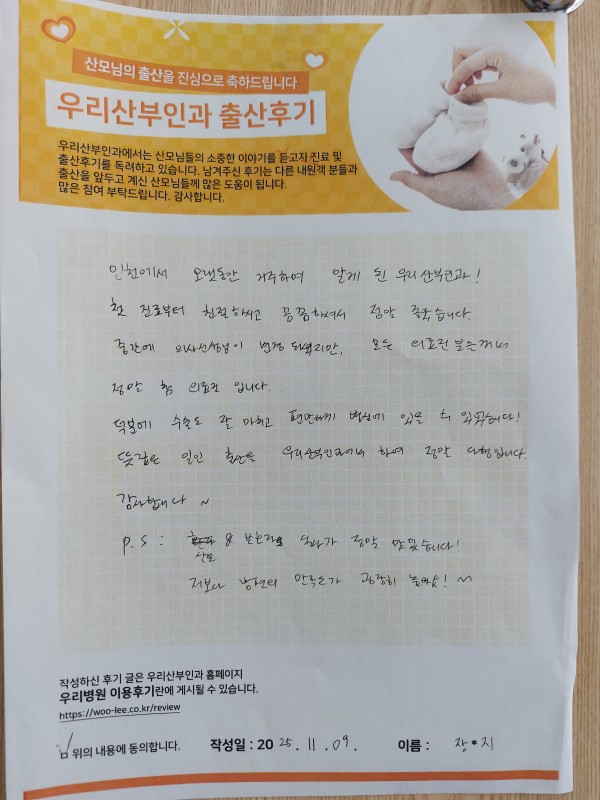 산모님의 출산을 진심으로 축하드립니다
우리산부인과 출산후기
우리산부인과에서는 산모님들의 소중한 이야기를 듣고자 진료 및
출산후기를 독려하고 있습니다. 남겨주신 후기는 다른 내원객 분들과
출산을 앞두고 계신 산모님들께 많은 도움이 됩니다.
많은 참여 부탁드립니다. 감사합니다.
인천에서 오랫동안 거주하여 알게 된 우리산부인과!
첫 진료부터 친절하시고 꼼꼼하셔서 정말 좋았습니다.
중간에 의사선생님이 변경 되셨지만, 모든 의료진 분들께서
정말 참 의료진 입니다.
덕분에 수술도 잘 마치고 편안하게 병실에 있을 수 있었습니다!
뜻깊은 일인 출산을 우리산부인과에서 하여 정말 다행입니다.
감사합니다 ~
P.S : & 식사가 정말 맛있습니다!
저보다 남편의 만족도가 굉장히 높아요! ~
작성하신 후기 글은 우리산부인과 홈페이지
우리병원 이용후기란에 게시될 수 있습니다.
https://woo-lee.co.kr/review
위의 내용에 동의합니다. 작성일 : 20 25. 11. 09. 이름 : 장*지